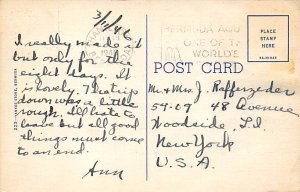 3/11/46
BERMUDA
ONE OF T
WORLD'S
PLACE
STAMP
HERE
POST CARD
I really made it
but only for the
eight days. It
is lovely. The trip
down was a little
rough. I'll hate to
leave but all good
things must come
to an end.
Ann
Mr & Mrs. J. Raffenzeder
59-07 48 Avenue
Woodside, L.I.
New York
U.S.A.